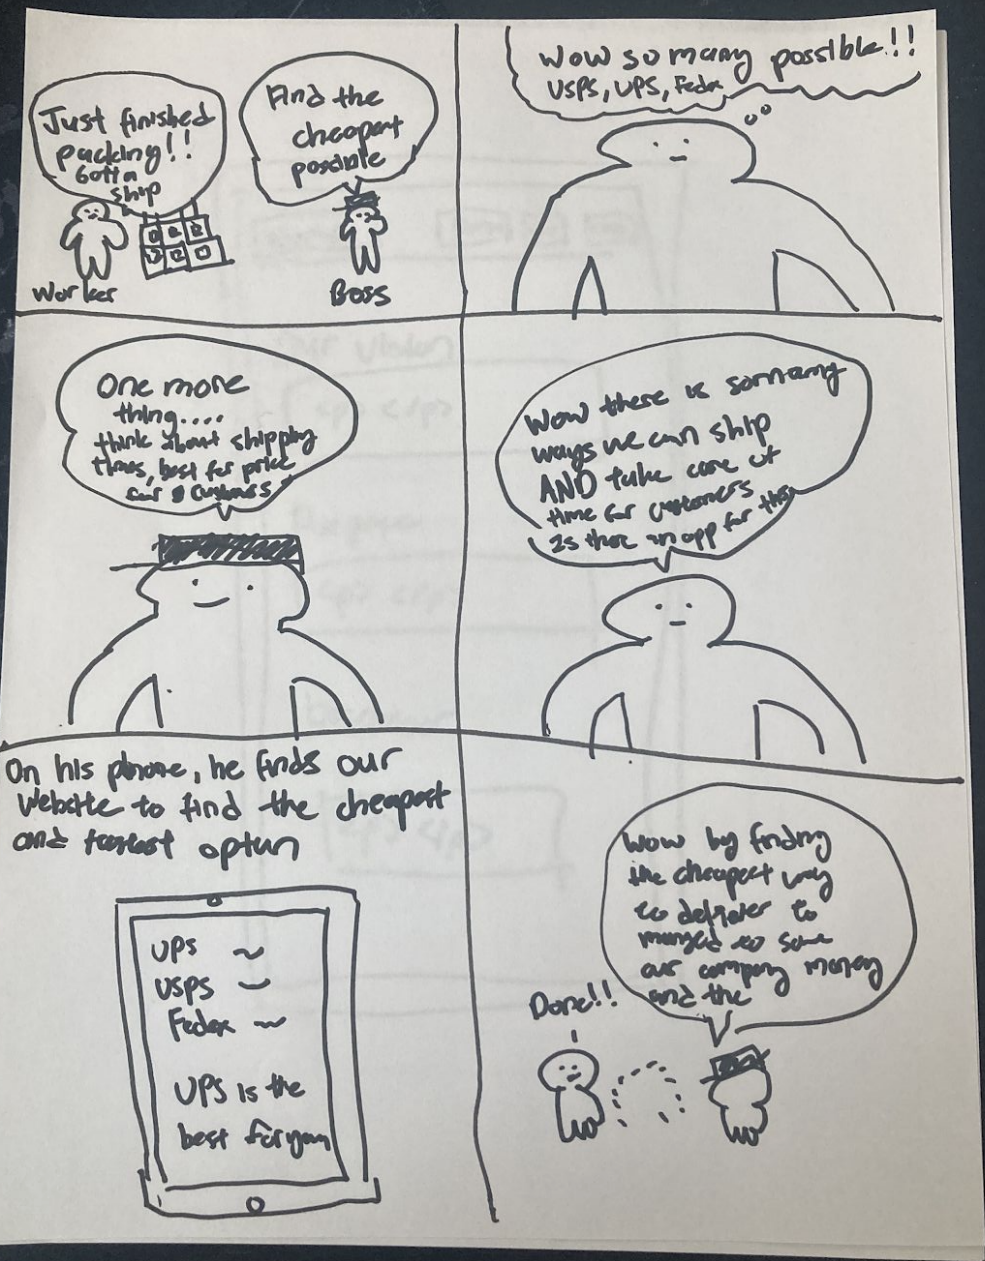 Just finished
packing!!
Gotta
ship
Find the
cheapest
possible
Worker
Boss
Wow so many possible!!
USPS, UPS, Fedex
One more
thing....
think about shipping
times, best for price
customers
Wow there is so many
ways we can ship
AND take care of
time for customers
Is there an app for this
On his phone, he finds our
website to find the cheapest
and fastest option
UPS
USPS
Fedex
UPS is the
best for you
Done!!
Wow by finding
the cheapest way
to deliver
to save
our company money
and the